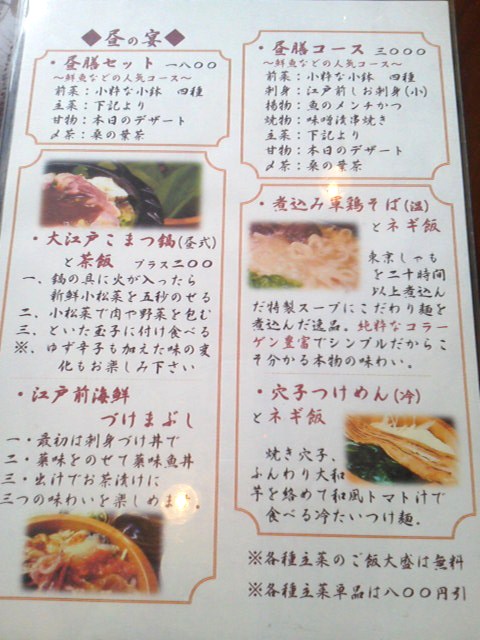 ◆昼の宴◆
・昼膳セット 一八〇〇
～鮮魚などの人気コース～
前菜：小粋な小鉢 四種
主菜：下記より
甘物：本日のデザート
〆茶：桑の葉茶
・昼膳コース 三〇〇〇
～鮮魚などの人気コース～
前菜：小粋な小鉢 四種
刺身：江戸前しお刺身(小)
揚物：魚のメンチかつ
焼物：味噌漬串焼き
主菜：下記より
甘物：本日のデザート
〆茶：桑の葉茶
・大江戸こまつ鍋(昼式)
と茶飯 プラス二〇〇
一、鍋の具に火が入ったら
新鮮小松菜を五秒のせる
二、小松菜で肉や野菜を包む
三、といた玉子に付け食べる
※、ゆず辛子も加えた味の変
化もお楽しみ下さい
・江戸前海鮮
づけまぶし
一・最初は刺身づけ丼で
二・薬味をのせて薬味魚丼
三・出汁でお茶漬けに
三つの味わいを楽しめます。
・煮込み軍鶏そば(温)
とネギ飯
東京しゃも
を二十時間
以上煮込ん
だ特製スープにこだわり麺を
煮込んだ逸品。純粋なコラー
ゲン豊富でシンプルだからこ
そ分かる本物の味わい。
・穴子つけめん(冷)
とネギ飯
焼き穴子、
ふんわり大和
芋を絡めて和風トマト汁で
食べる冷たいつけ麺.
※各種主菜のご飯大盛は無料
※各種主菜単品は八〇〇円引